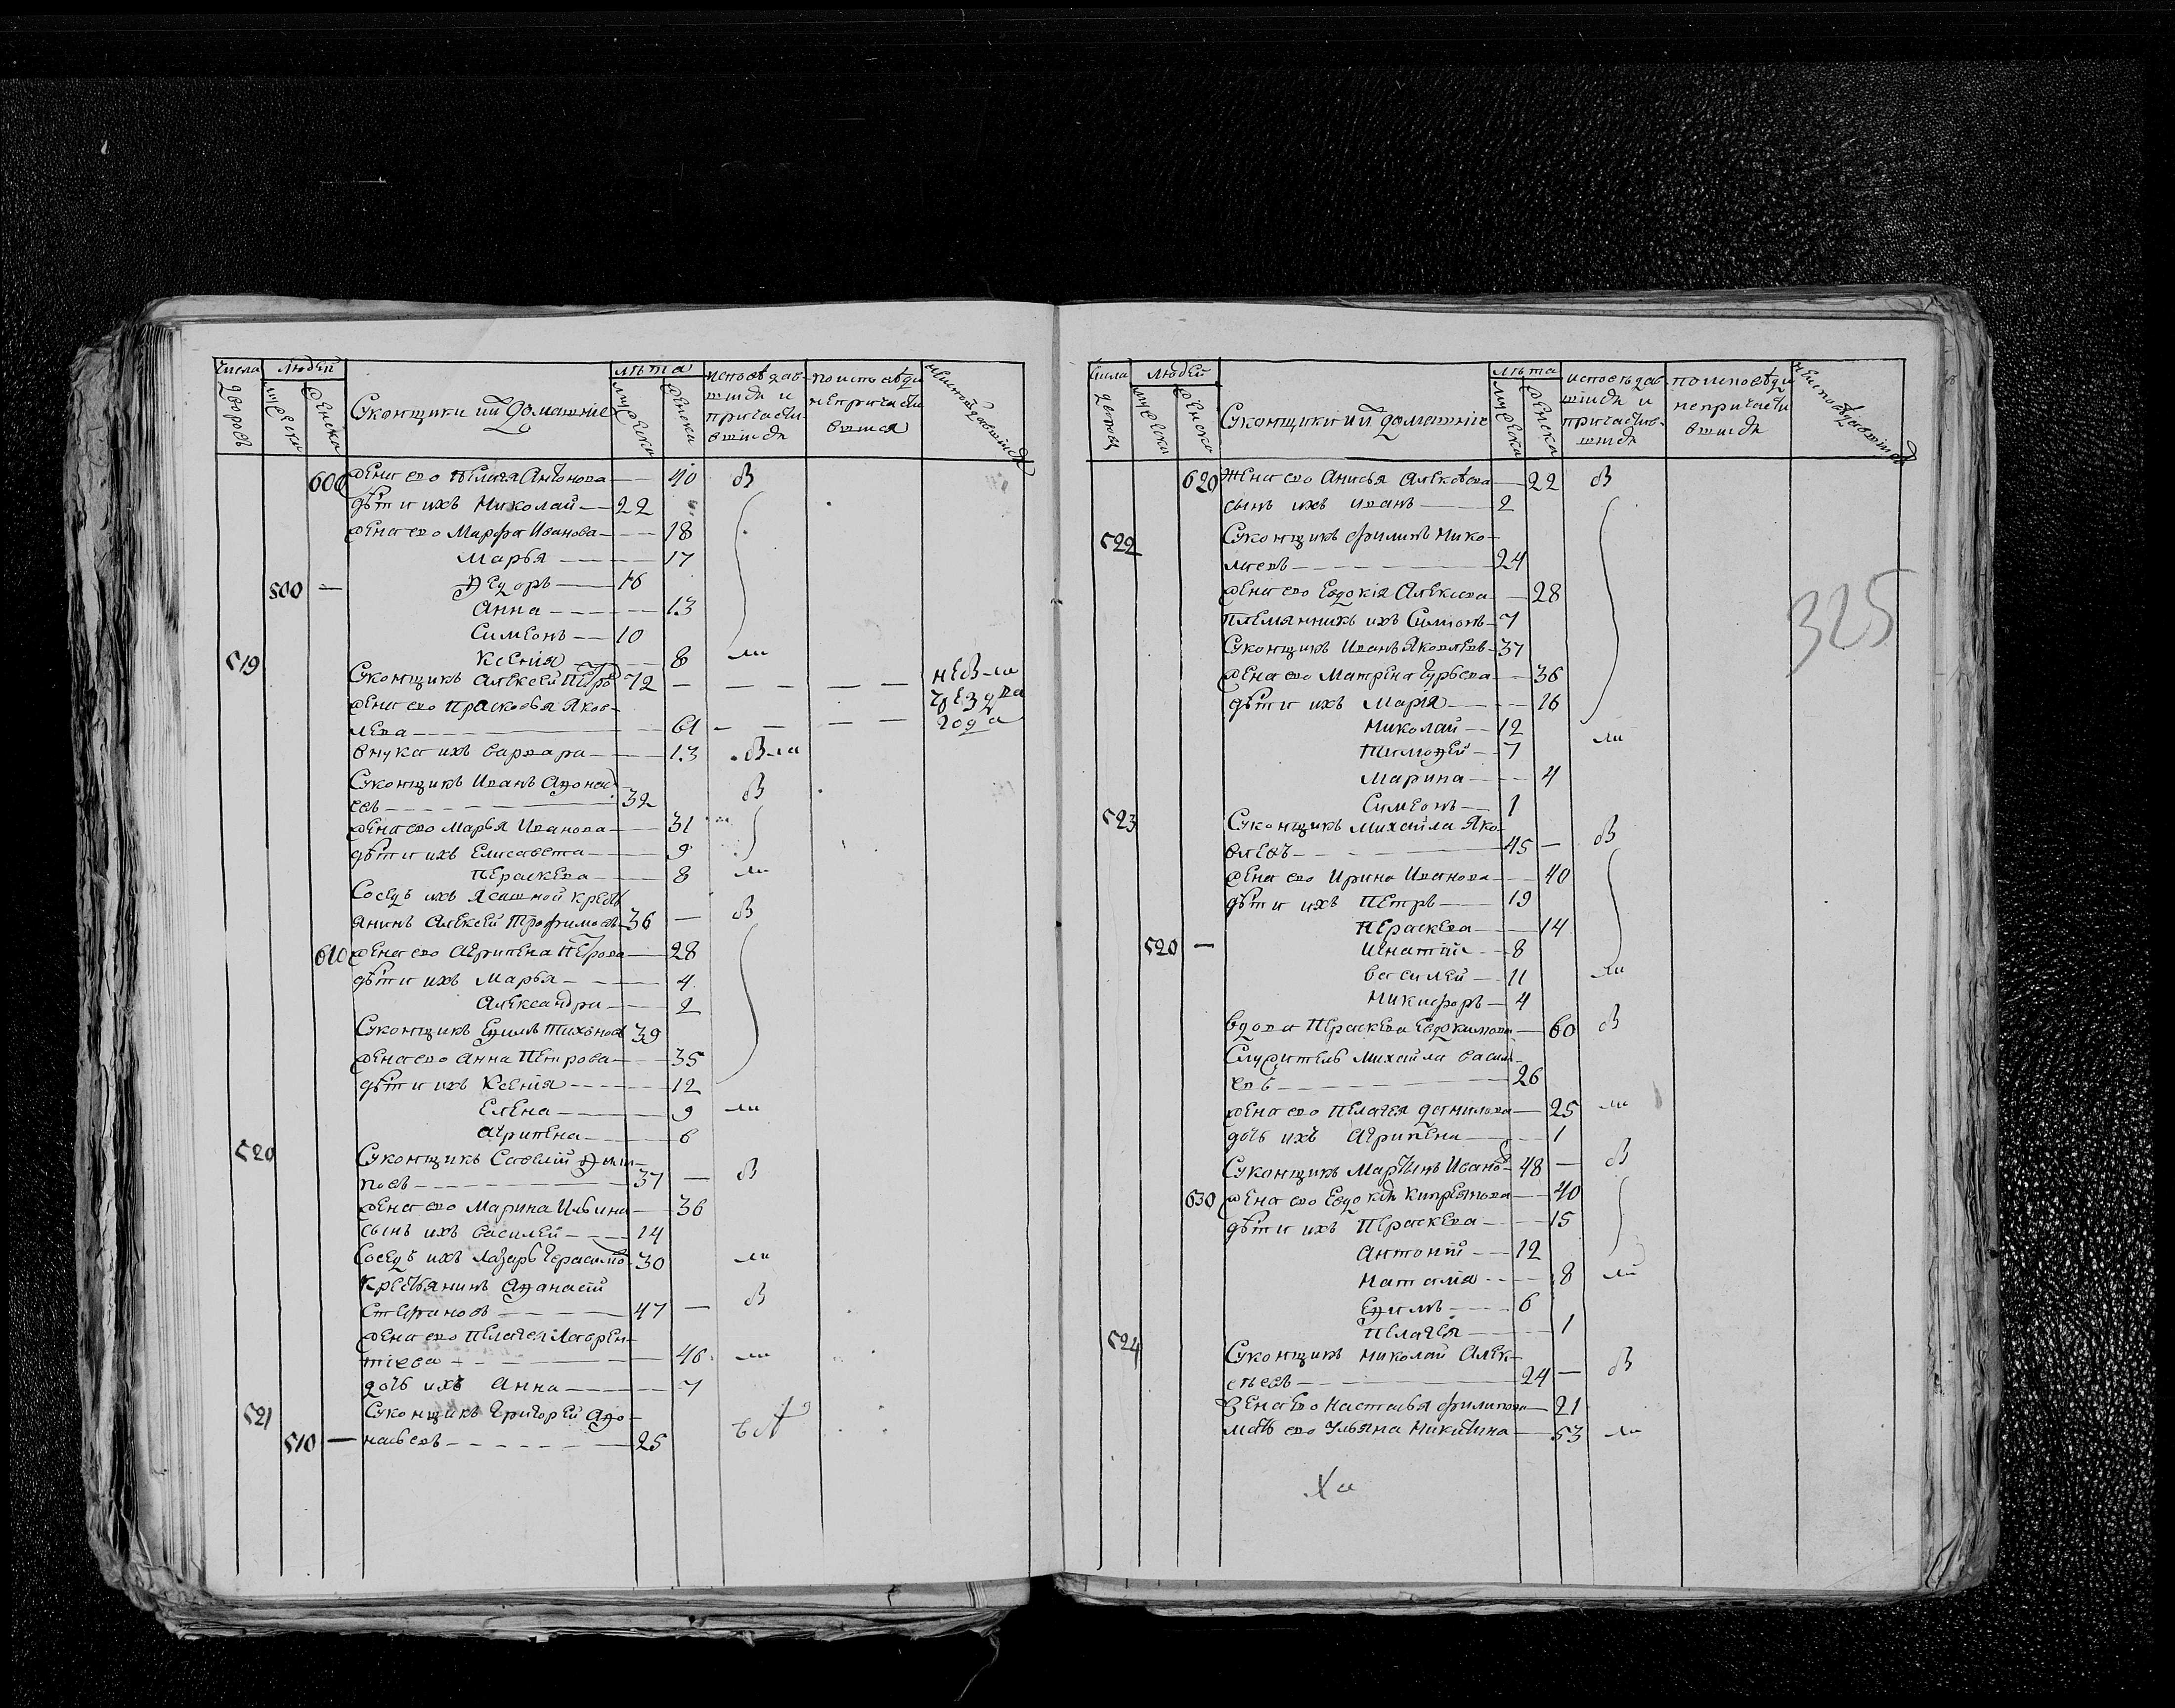 числа дворовъ
людей
мужеска
женска
Суконщики ии домашніе
лѣта
мужеска
женска
исповѣдав-
шися и
причасти-
вшися
по исповѣди
непричасти
вшися
неисповѣдавшися
600 жена ево Пелагея Антонова 40 в
дѣти ихъ Миколай 22
жена ево Марфа Иванова 18
Марья 17
500 — Ѳедоръ 16
Анна 13
Симеонъ 10
519 Ксенія 8 ли
Суконщикъ Алексей Петро 72 — — — — — не в ли
жена ево Прасковья Яков-
лева 61 — — — — года
внука ихъ Варвара 13 в ли
Суконщикъ Иванъ Аѳонас
евъ 32 в
жена ево Марья Иванова 31
дѣти ихъ Елисавета 9
Пераскева 8 ли
Соседъ ихъ ясашной кресть
янинъ Алексей Трофимовъ 36 — в
610 жена ево Агрипена Петрова 28
дѣти ихъ Марья 4
Александра 2
Суконщикъ Еѳимъ Тихоновъ 39
жена ево Анна Петрова 35
дѣти ихъ Ксенія 12
Елена 9 ли
Агрипена 6
520 Суконщикъ Савелій Ѳили-
повъ 37 — в
жена ево Марина Ильина 36
сынъ ихъ Василей 14
Соседъ ихъ Лазарь Герасимо 30 ли
Крестьянинъ Аѳанасій
Стефановъ 47 — в
жена ево Пелагея Лаврен-
тіева 46 ли
дочь ихъ Анна 7
521 Суконщикъ Григорей Аѳо-
510 — насьевъ 25
числа дворовъ
людей
мужеска
женска
Суконщики ии домашніе
лѣта
мужеска
женска
исповѣдав-
шися и
причастив-
шися
по исповѣди
непричасти
вшися
неисповѣдавшися
620 жена ево Анисья Алексѣева 22 в
сынъ ихъ Иванъ 2
522 Суконщикъ Филипъ Мико-
лаевъ 24
жена ево Евдокія Алексеева 28
племянникъ ихъ Симионъ 7
Суконщикъ Иванъ Яковлевъ 37
жена ево Матрена Гурьева 36
дѣти ихъ Марія 16
Миколай 12
Тимоѳей 7 ли
Марина 4
Симеонъ 1
523 Суконщикъ Михайла Яко-
влевъ 45 — в
жена ево Ирина Иванова 40
дѣти ихъ Петръ 19
Пераскева 14
520 — Игнатій 8
Василей 11 ли
Микифоръ 4
вдова Пераскева Евдокимова 60 в
Служитель Михайла Василь-
евъ 26
жена ево Пелагея Данилова 25 ли
дочь ихъ Агрипена 1
Суконщикъ Мартинъ Ивано 48 — в
630 жена ево Евдокія Кипреянова 40
дѣти ихъ Пераскева 15
Антоній 12
Наталія 8 ли
Еѳимъ 6
Пелагея 1
524 Суконщикъ Миколай Алек-
сѣевъ 24 — в
жена ево Настасья Филипова 21
мать ево Ульяна Микитина 53 ли
325